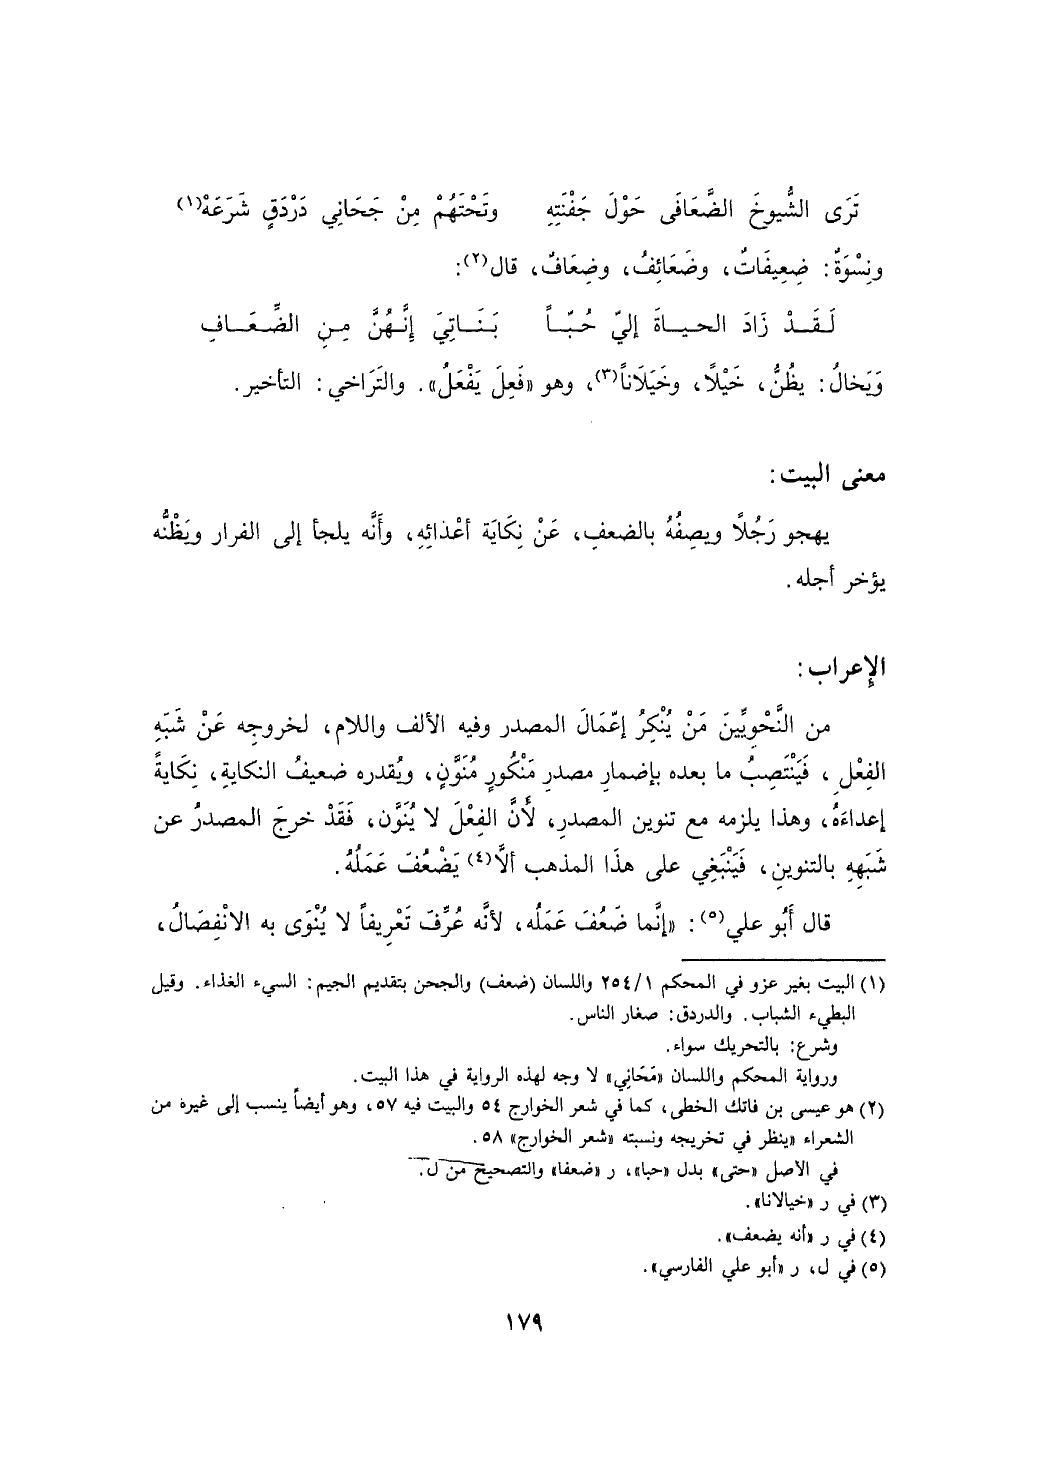 تَرَى الشُّيوخَ الضَّعَافَى حَوْلَ جَفْنَتِهِ وتَحْتَهُمْ مِنْ جَحَانِي دَرْدَقٍ شَرَعَهْ(١)
ونِسْوَةٌ: ضعِيفَاتٌ، وضَعَائِفُ، وضِعَافٌ، قال(٢):
لَقَدْ زَادَ الحياةَ إليّ حُبّاً بَنَاتِيَ إنَّهُنَّ مِنِ الضِّعَافِ
وَيَخالُ: يظُنُّ، خَيْلًا، وخَيَلَاناً(٣)، وهو «فَعِلَ يَفْعَلُ». والتَرَاخي: التأخير.
معنى البيت:
يهجو رَجُلًا ويصِفُهُ بالضعفِ، عَنْ نِكَايَة أعْدَائِهِ، وأَنَّه يلجأ إلى الفرار ويَظْنُّه
يؤخر أجله.
الإعراب:
من النَّحْوِيِّينَ مَنْ يُنْكِرُ إعّمَالَ المصدر وفيه الألف واللام، لخروجِه عَنْ شَبَهِ
الفِعْلِ، فَيَنْتَصِبُ ما بعده بإضمارِ مصدرٍ مَنْكُورٍ مُنَوَّنٍ، ويُقدره ضعيفُ النكايةِ، نِكايةً
إعداءَهُ، وهذا يلزمه مع تنوين المصدرِ، لأَنَّ الفِعْلَ لا يُنَوَّن، فَقَدْ خرجَ المصدرُ عن
شَبَهِهِ بالتنوينِ، فَيَنْبَغِي على هذَا المذهب ألَّا(٤) يَضْعُفَ عَمَلُهُ.
قال أَبُو علي(٥): «إنَّما ضَعُفَ عَمَلُه، لأنَّه عُرِّفَ تَعْرِيفاً لا يُنْوَى به الانْفِصَالُ،
(١) البيت بغير عزو في المحكم ٢٥٤/١ واللسان (ضعف) والجحن بتقديم الجيم: السيء الغذاء. وقيل
البطيء الشباب. والدردق: صغار الناس.
وشرع: بالتحريك سواء.
ورواية المحكم واللسان «مَحَانِي» لا وجه لهذه الرواية في هذا البيت.
(٢) هو عيسى بن فاتك الخطى، كما في شعر الخوارج ٥٤ والبيت فيه ٥٧، وهو أيضاً ينسب إلى غيره من
الشعراء «ينظر في تخريجه ونسبته «شعر الخوارج» ٥٨.
في الاصل «حتى» بدل «حبا»، ر «ضعفا» والتصحيح من ل.
(٣) في ر «خيالانا».
(٤) في ر «أنه يضعف».
(٥) في ل، ر «أبو علي الفارسي».
١٧٩